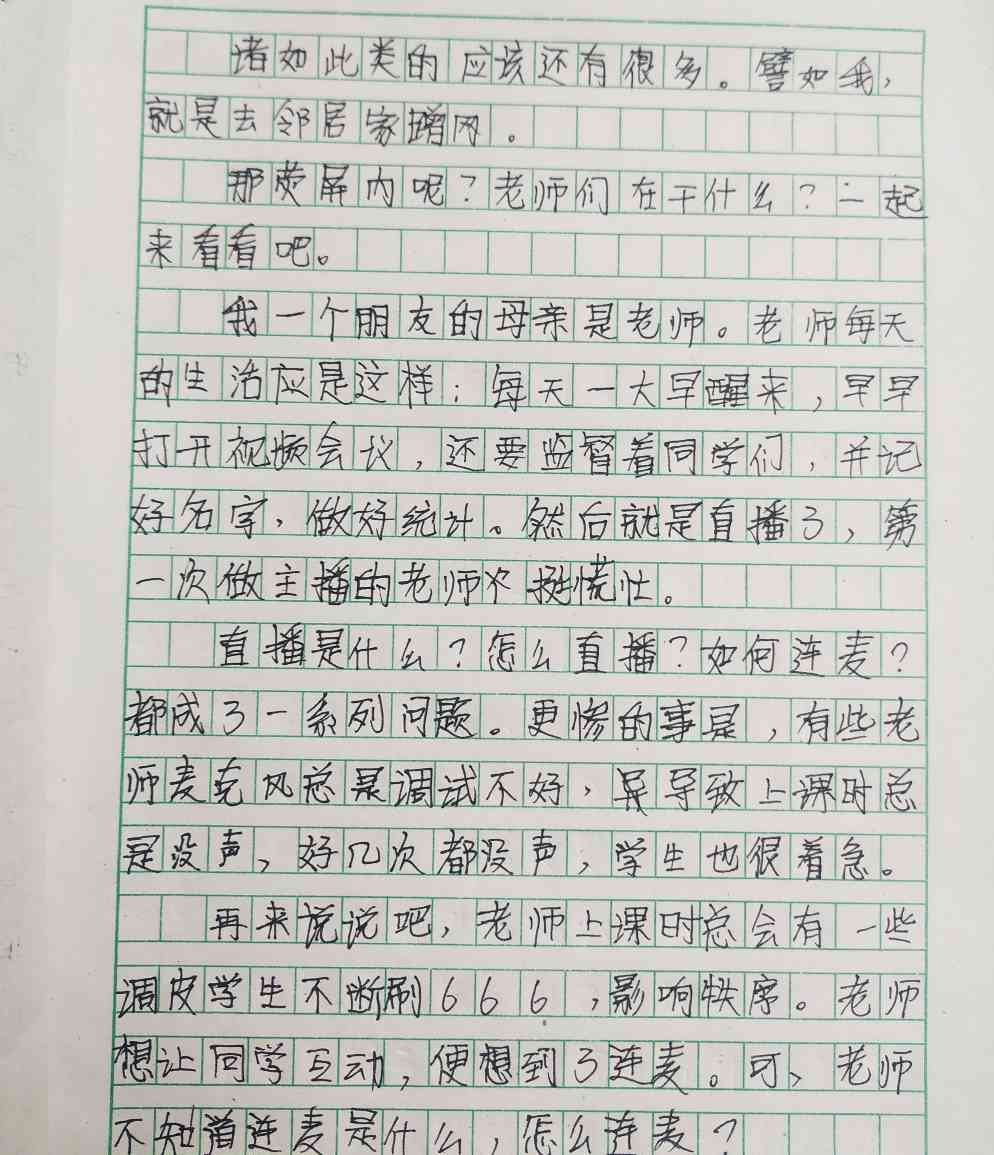 诸如此类的应该还有很多。譬如我，
就是去邻居家蹭网。
那荧屏内呢？老师们在干什么？一起
来看看吧。
我一个朋友的母亲是老师。老师每天
的生活应是这样：每天一大早醒来，早早
打开视频会议，还要监督着同学们，并记
好名字，做好统计。然后就是直播了，第
一次做主播的老师不挺慌忙。
直播是什么？怎么直播？如何连麦？
都成了一系列问题。更惨的事是，有些老
师麦克风总是调试不好，导致上课时总
是没声，好几次都没声，学生也很着急。
再来说说吧，老师上课时总会有一些
调皮学生不断刷666，影响秩序。老师
想让同学互动，便想到了连麦。可、老师
不知道连麦是什么，怎么连麦？